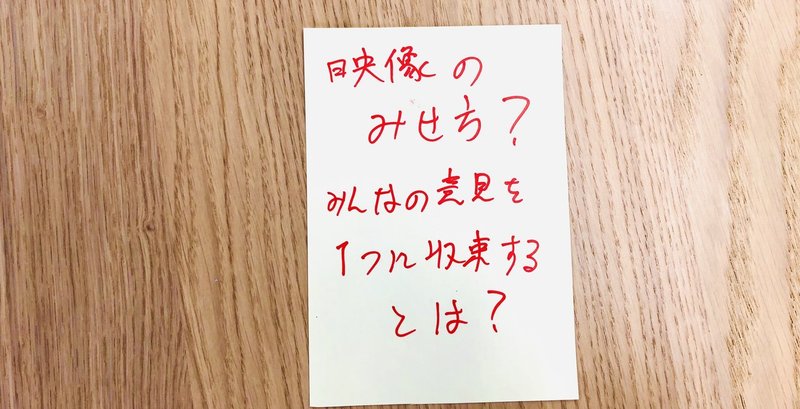 映像の
みせ方?
みんなの意見を
1つに収束する
とは?